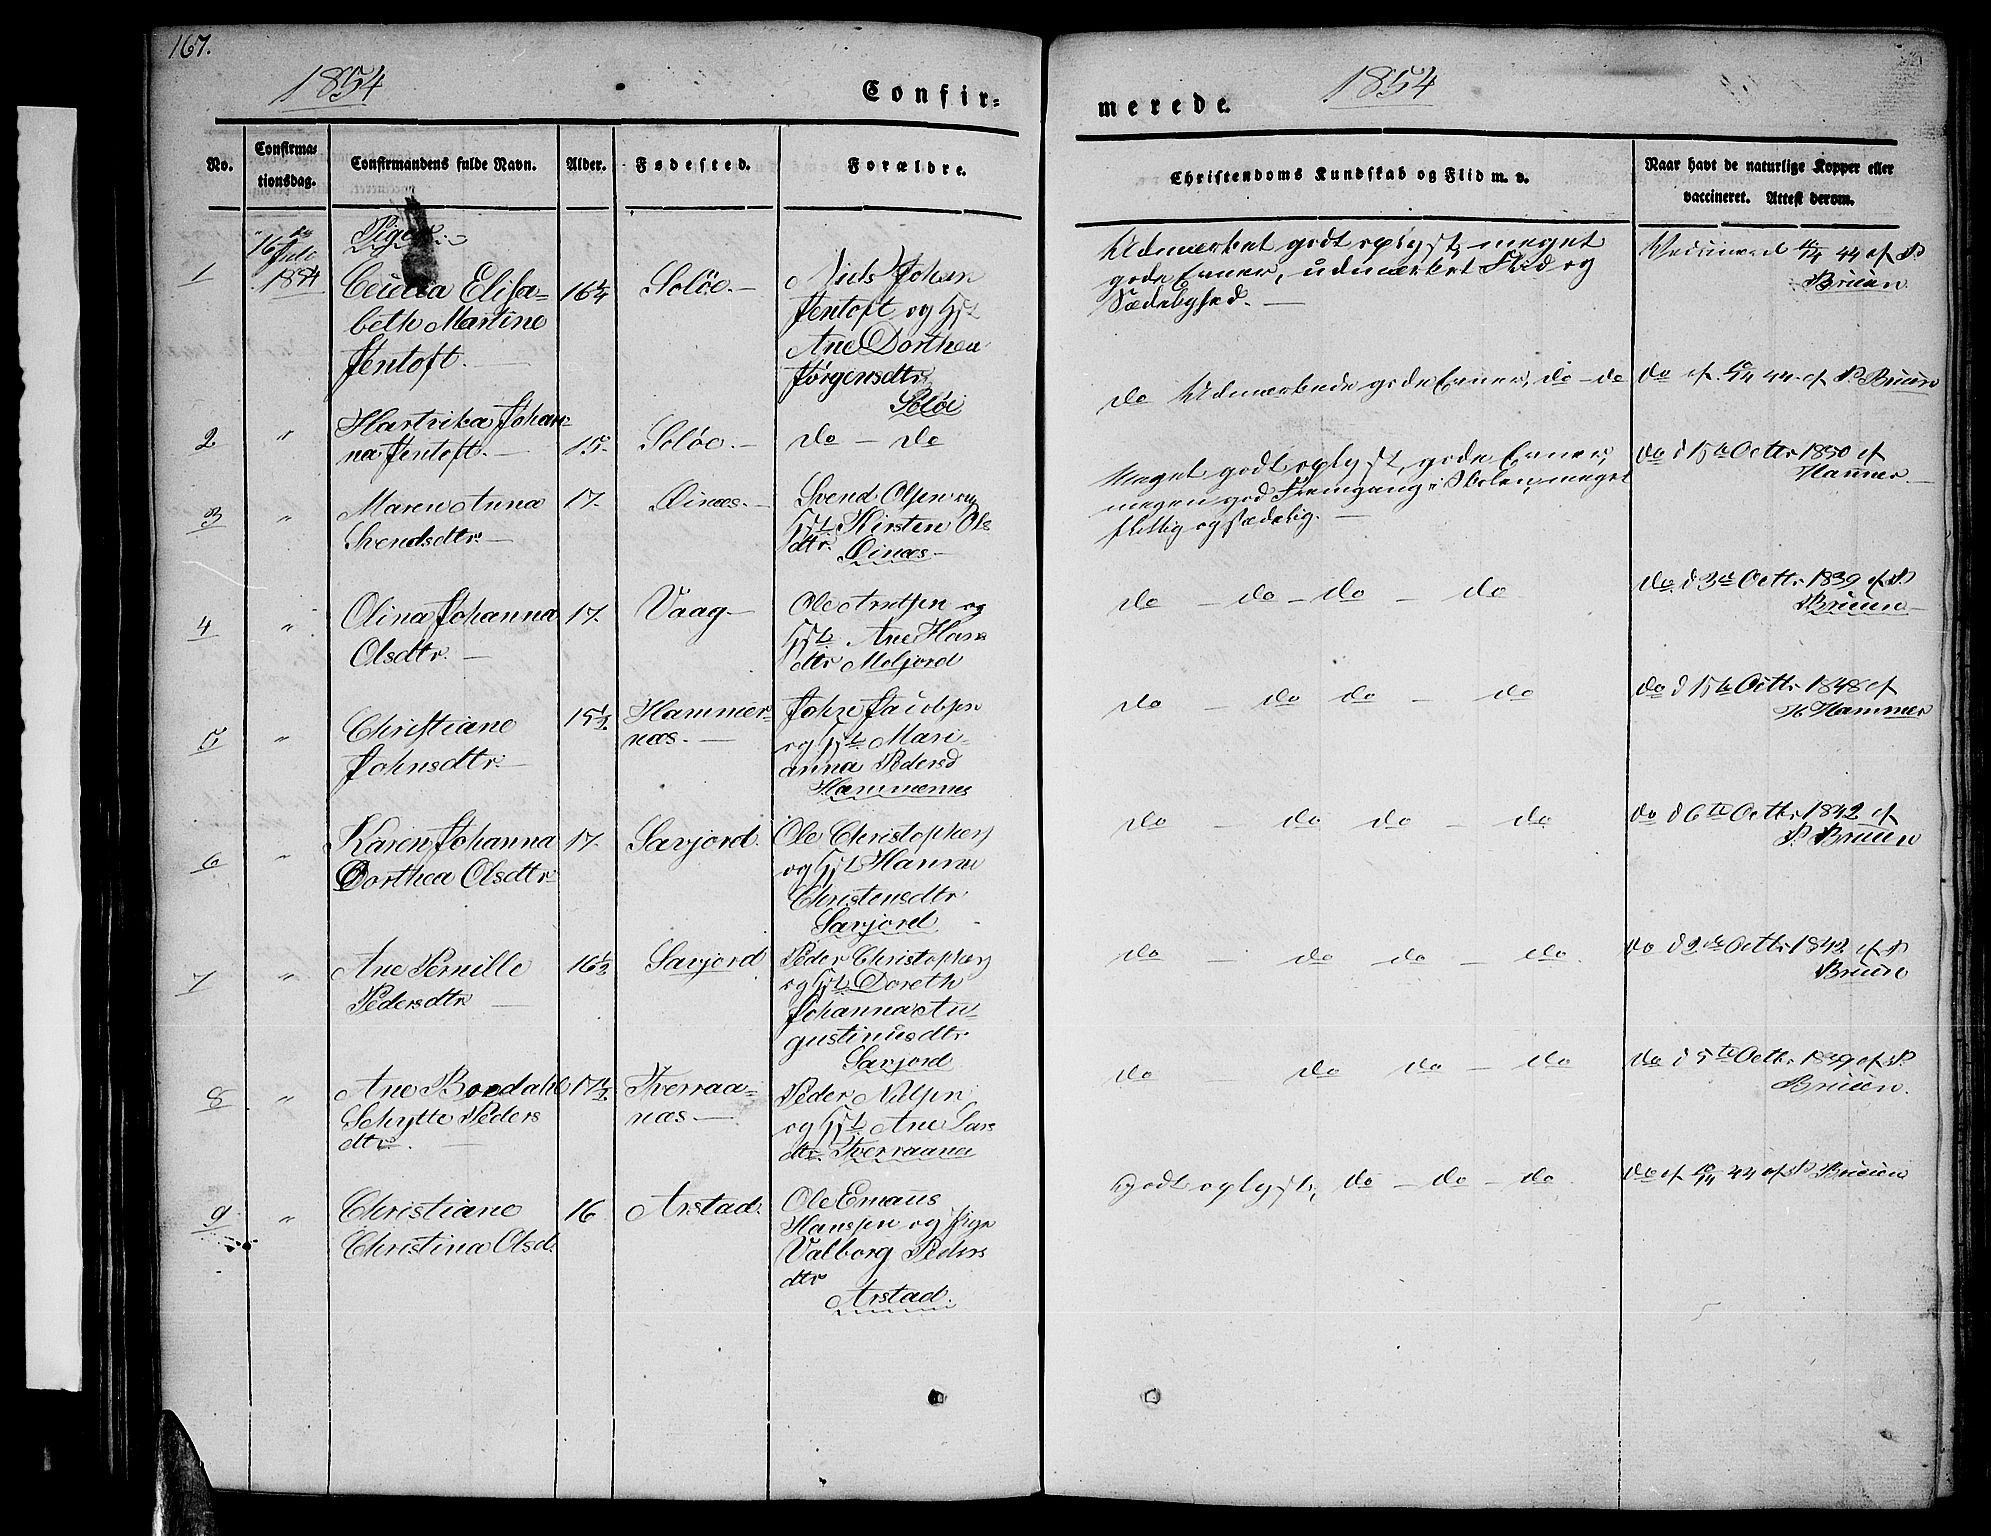 167.
1854
Confir=
merede.
1854
No.
Confirma=
tionsdag.
Confirmandens fulde Navn.
Alder.
Fødested.
Forældre.
Christendoms Kundskab og Flid m. v.
Naar havt de naturlige Kopper eller
vaccineret. Attest derom.
16de Juli
1854
Piger
1 Cecilia Elisa-
beth Martine
Jentoft.
16¼
Soløe.
Niels Johan
Jentoft og Hst
Ane Dorthea
Jørgensdtr
Soløe
Udmærket godt oplyst, meget
gode Evner, udmærket Flid og
Sædelighed.
Vaccineret 44 af P
Brüün
2 " Hartvika Johan-
na Jentoft.
15.
Soløe.
do do
do Udmærkede gode Evner, do do
do af 44 af P. Brüün
3 " Maren Anna
Svendsdtr.
17.
Øinæs.
Svend Olsen og
Hst. Kirsten Ols
dtr. Øinæs
Meget godt oplyst, gode Evner,
megen god Fremgang i Skolen, meget
flittig og sædelig.
do d 15de Octbr 1850 af
Hammer.
4 " Olina Johanna
Olsdtr.
17.
Vaag
Ole Arntsen og
Hst. Ane Hans
dtr Meljord
do do do do
do d 3de Octbr 1839 af P
Brüün
5 " Christiane
Johnsdtr.
15½
Hammer-
næs.
John Jacobsen
og Hst. Mari-
anna Pedersd
Hammernes
do do do do
do d 15de Octbr 1848 af
H Hammer
6 " Karen Johanna
Dorthea Olsdtr
17.
Savjord.
Ole Christophers
og Hst Hanna
Christensdtr
Savjord
do do do do
do d 6te Octbr 1842 af
P. Brüün
7 " Ane Pernille
Pedersdtr
16½
Savjord
Peder Christophers
og Hst Doreth
Johanna Au-
gustinusdtr
Savjord
do do do do.
do d 2de Octbr 1842 af P
Brüün
8 " Ane Boedahl
Schytte Peders
dtr.
17½
Tverraa-
næs
Peder Nilsen
og Hst. Ane Lars
dtr. Tverraanes
do do do do
do d 5te Octbr 1839 af P.
Brüün.
9 " Christiane
Christina Olsd.
16
Arstad.
Ole Emaüs
Hansen og Pige
Valborg Peders
dtr
Arstad.
Godt oplyst, do do do
do af 44 af P Brüün